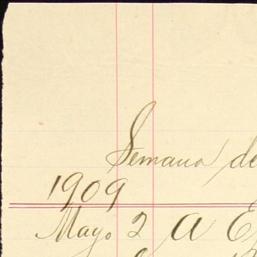 Semana de
1909
Mayo 2 A E